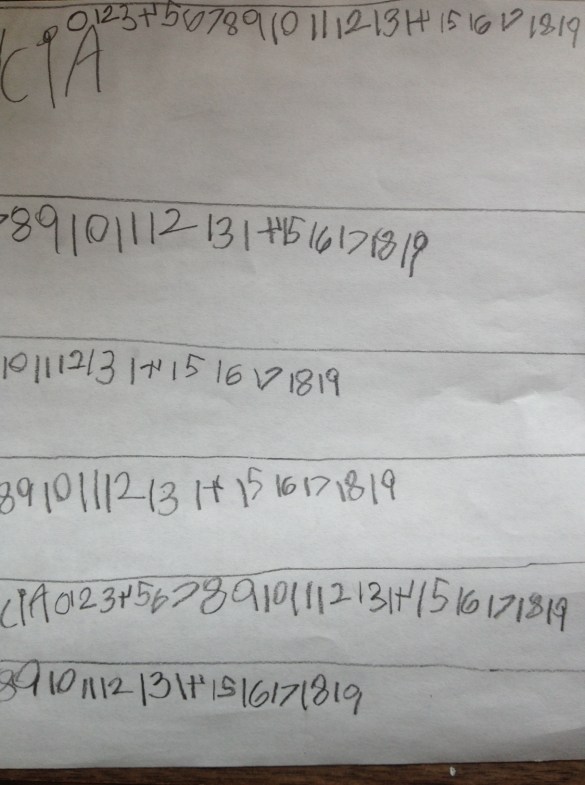 CIA 012345678910111213141516171819
78910111213141516171819
10111213141516171819
8910111213141516171819
CIA012345678910111213141516171819
8910111213141516171819